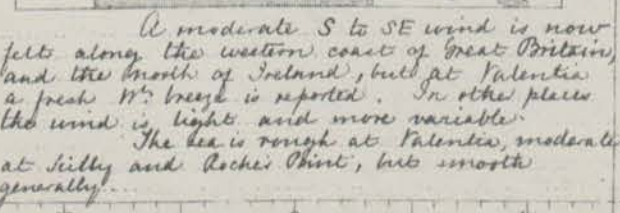 A moderate S to SE wind is now
felt along the western coast of Great Britain,
and the north of Ireland, but at Valentia
a fresh Wly breeze is reported. In other places
the wind is light and more variable.
The sea is rough at Valentia, moderate
at Scilly and Roche's Point, but smooth
generally.